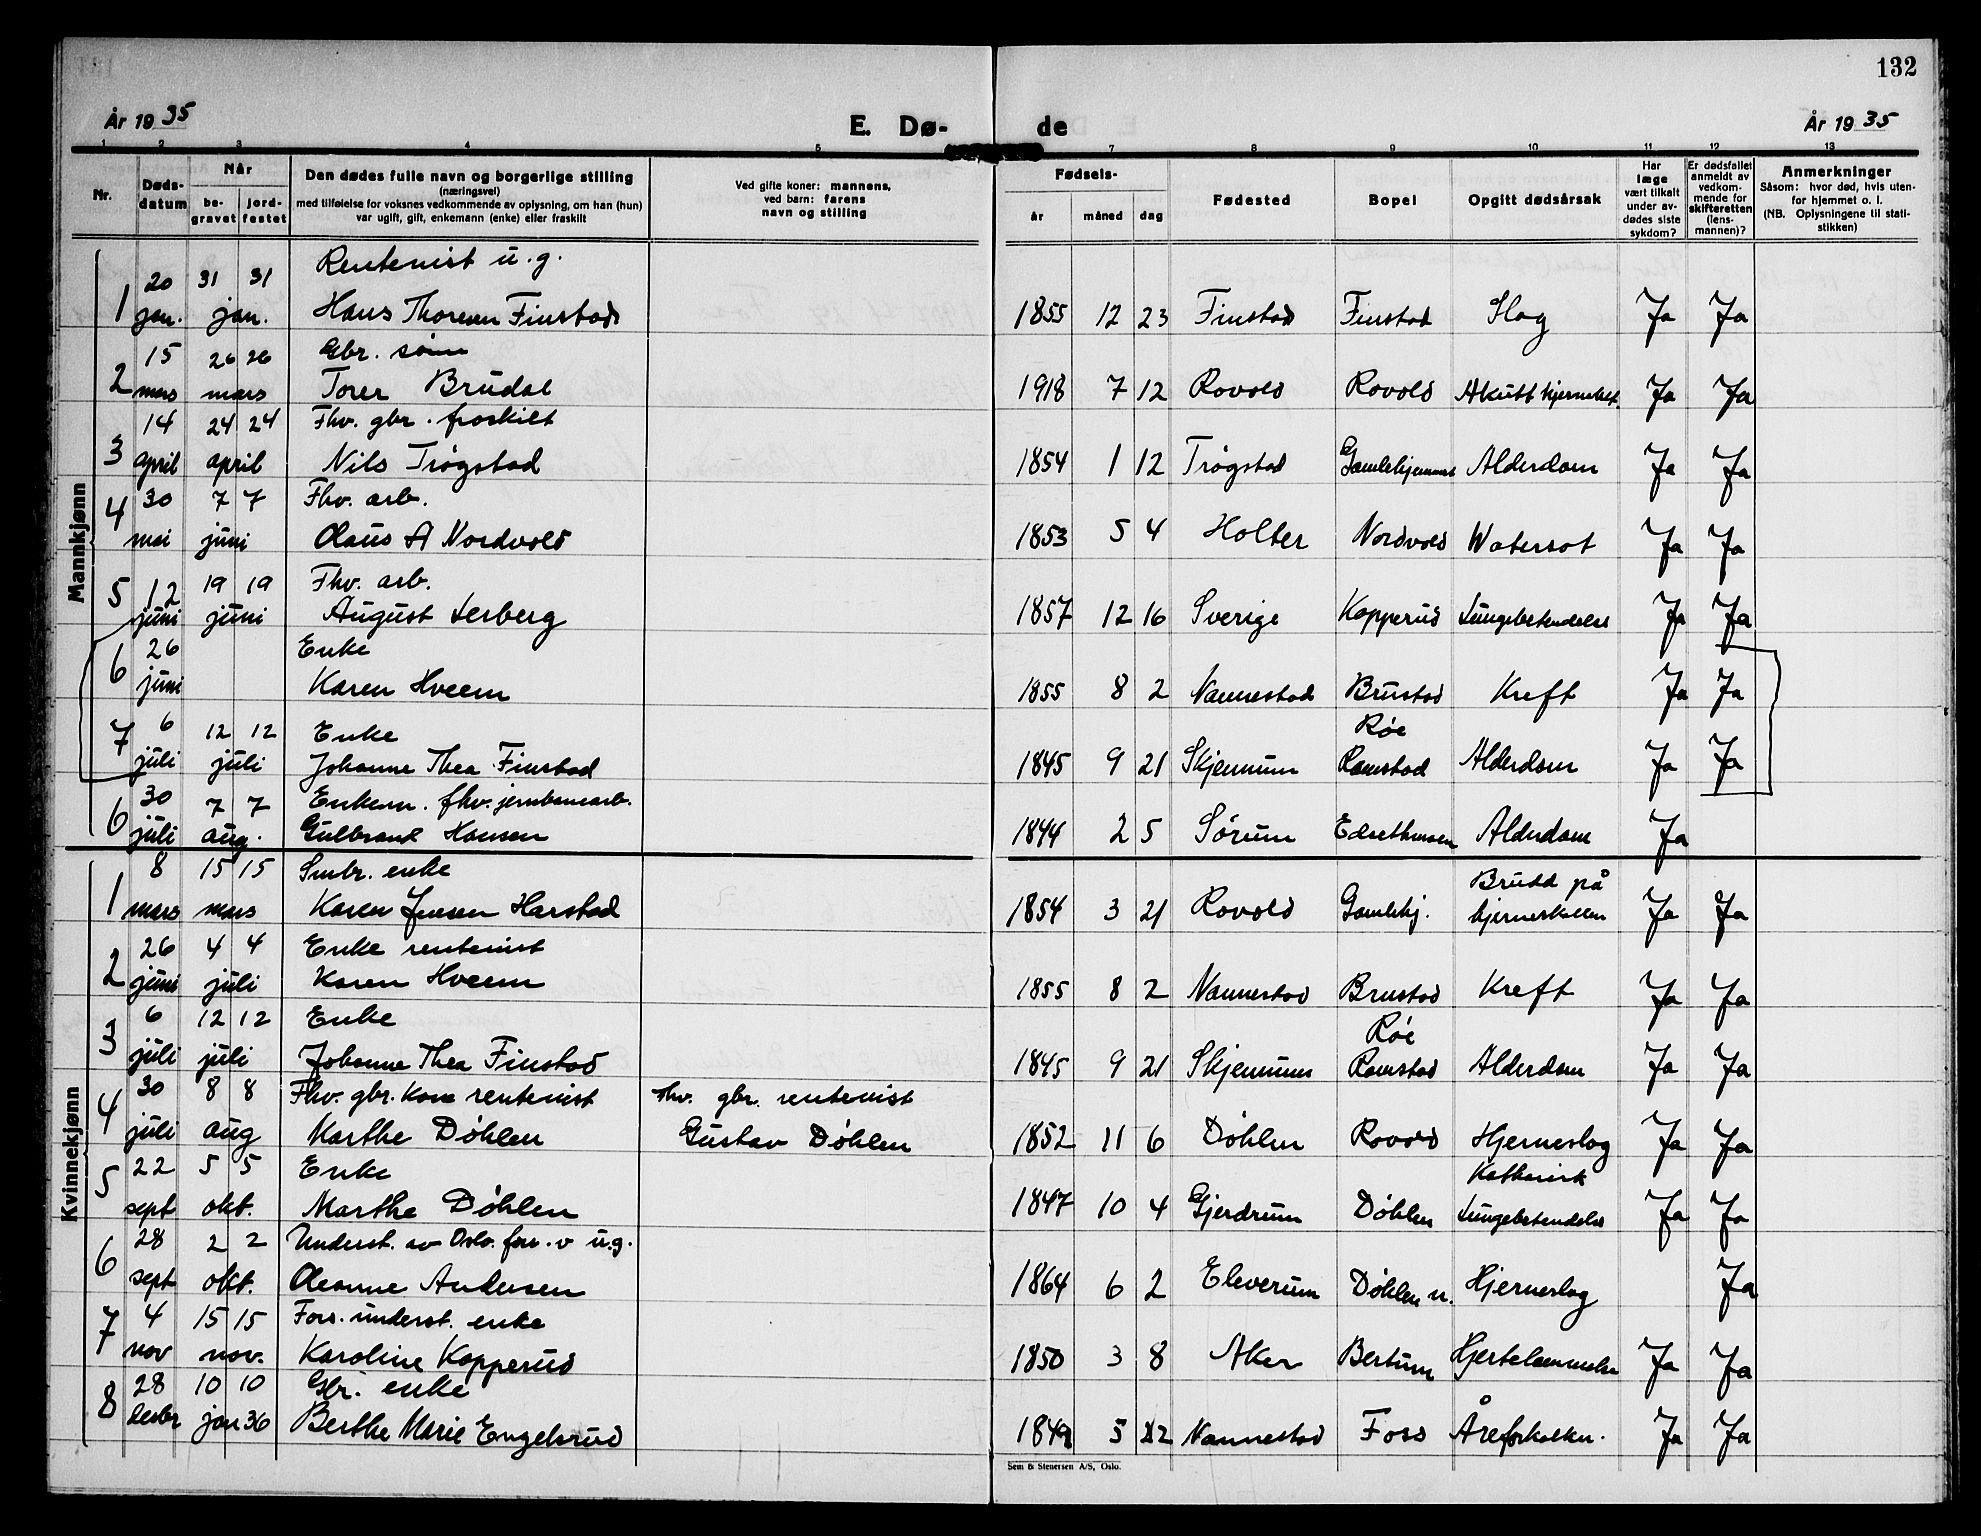 132
År 1935
E. Dø-
de
År 1935
1 2 3 4 5 7 8 9 10 11 12 13
Nr.
Døds-
datum
Når
be-
gravet
jord-
festet
Den dødes fulle navn og borgerlige stilling
(næringsvei)
med tilføielse for voksnes vedkommende av oplysning, om han (hun)
var ugift, gift, enkemann (enke) eller fraskilt
Ved gifte koner: mannens,
ved barn: farens
navn og stilling
Fødsels-
år måned dag
Fødested
Bopel
Opgitt dødsårsak
Har
læge
vært tilkalt
under av-
dødes siste
sykdom?
Er dødsfallet
anmeldt av
vedkom-
mende for
skifteretten
(lens-
mannen)?
Anmerkninger
Såsom: hvor død, hvis uten-
for hjemmet o. l.
(NB. Oplysningene til stati-
stikken)
Mannkjønn
20 31 31 Rentenist u.g.
1 jan. jan. Hans Thoresen Finstad 1855 12 23 Finstad Finstad Slag Ja Ja
15 26 26 Gbr. sønn
2 mars mars Torer Brudal 1918 7 12 Rovold Rovold Akutt hjernebet. Ja Ja
14 24 24 Fhv. gbr. fraskilt
3 april april Nils Trøgstad 1854 1 12 Trøgstad Gamlehjemmet Alderdom Ja Ja
30 7 7 Fhv. arb.
4 mai juni Olaus A Nordvold 1853 5 4 Holter Nordvold Watersot Ja Ja
12 19 19 Fhv. arb.
5 juni juni August Lerberg 1857 12 16 Sverige Kopperud Lungebetendelse Ja Ja
26 Enke
6 juni Karen Hveem 1855 8 2 Nannestad Brustad Kreft Ja Ja
6 12 12 Enke Røe
7 juli juli Johanne Thea Finstad 1845 9 21 Skjennum Ramstad Alderdom Ja Ja
30 7 7 Enkem. fhv. jernbanearb.
6 juli aug. Gulbrand Hansen 1844 2 5 Sørum Alderdom Ja
Kvinnekjønn
8 15 15 Smbr. enke Brudd på
1 mars mars Karen Jensen Harstad 1854 3 21 Rovold Gamlehj. hjerneskallen Ja Ja
26 4 4 Enke rentenist
2 juni juli Karen Hveem 1855 8 2 Nannestad Brustad Kreft Ja Ja
6 12 12 Enke Røe
3 juli juli Johanne Thea Finstad 1845 9 21 Skjennum Ramstad Alderdom Ja Ja
30 8 8 Fhv. gbr. kone rentenist fhv. gbr. rentenist
4 juli aug Marthe Døhlen Gustav Døhlen 1852 11 6 Døhlen Rovold Hjerneslag Ja Ja
22 5 5 Enke Katharisk
5 sept okt. Marthe Døhlen 1847 10 4 Gjerdrum Døhlen Lungebetendelse Ja Ja
28 2 2 Underst. av Oslo. fors. v u.g.
6 sept okt. Oleanne Andersen 1864 6 2 Elverum Døhlen n. Hjerneslag Ja
4 15 15 Fors. underst. enke
7 nov nov. Karoline Kopperud 1850 3 8 Aker Bertum Hjertelammelse Ja Ja
28 10 10 Gbr. enke
8 desbr jan 36 Berthe Marie Engelsrud 1849 5 22 Nannestad Foss Åreforkalkn. Ja Ja
Sem & Stenersen A/S, Oslo.